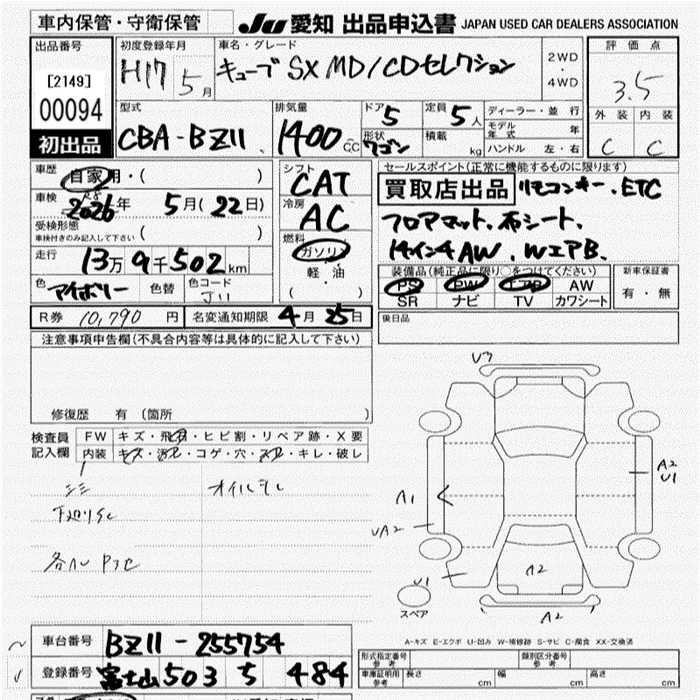 車内保管・守衛保管 JU 愛知 出品申込書 JAPAN USED CAR DEALERS ASSOCIATION
出品番号 [2149] 00094 初出品
初度登録年月 H17 5月
車名・グレード キューブ SX MD/CDセレクション 2WD・4WD
評価点 3.5
外装 内装
C C
型式 CBA-BZ11
排気量 1400cc
ドア 5 定員 5人
形状 ワゴン 積載 kg
ディーラー・並行
モデル年式 年
ハンドル 左・右
車歴 自家用・( )
車検 2026年 5月(22日)
受検形態 車検付きのみ記入して下さい ( )
走行 13万9千502km
色 アイボリー 色替 色コード J11
シフト CAT
冷房 AC
燃料 ガソリン 軽油 ( )
セールスポイント(正常に機能するものに限ります)
買取店出品 リモコンキー、ETC
フロアマット、布シート、
14インチAW、WエアB、
装備品(純正品に限り○をつけてください) 新車保証書
PS PW エアB AW 有・無
SR ナビ TV カワシート
R券 10,790円 名変通知期限 4月25日
後日品
注意事項申告欄(不具合内容等は具体的に記入して下さい)
修復歴 有 (箇所 )
検査員記入欄 FW キズ・飛石・ヒビ割・リペア跡・X要
内装 キズ・汚れ・コゲ・穴・スレ・キレ・破レ
V3
A1
UA2
U1
A2
U1
A2
A2
スペア
A-キズ E-エクボ U-凹み W-補修跡 S-サビ C-腐食 XX-交換済
車台番号 BZ11-255754
登録番号 富士山 503 ち 484
型式指定番号 参考 類別区分番号 参考
車庫証明用 参考 長さ cm 幅 cm 高さ cm